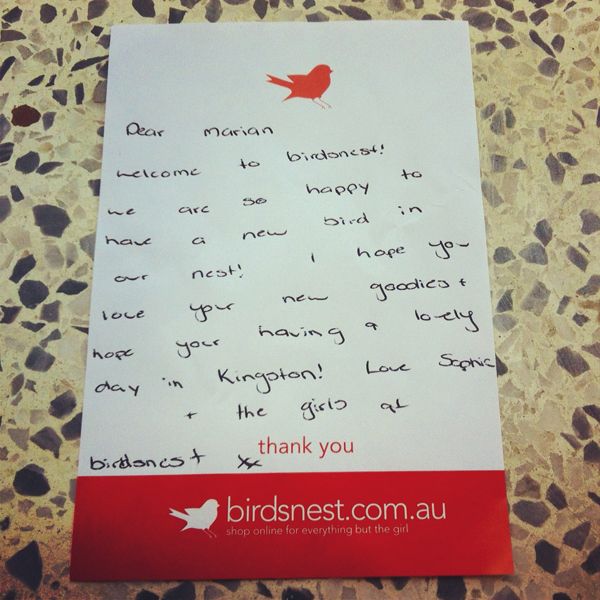 Dear Marian
welcome to birdsnest!
we are so happy to
have a new bird in
our nest! I hope you
love your new goodies +
hope your having a lovely
day in Kingston! Love Sophie
+ the girls at
thank you
birdsnest xx
birdsnest.com.au
shop online for everything but the girl